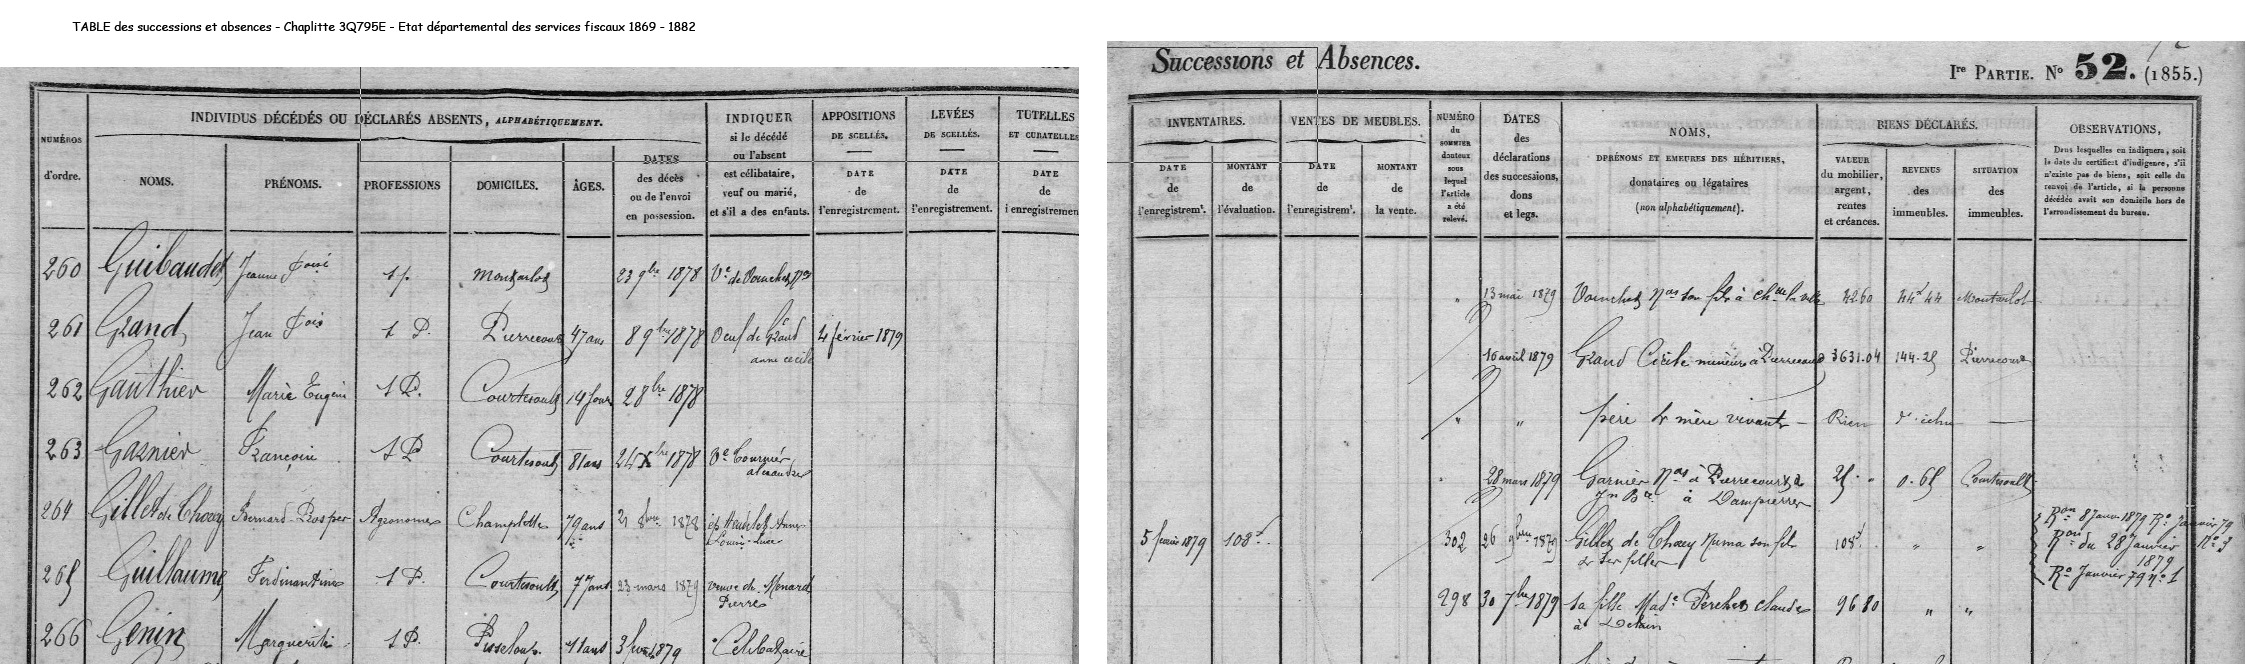 TABLE des successions et absences - Chaplitte 3Q795E - Etat départemental des services fiscaux 1869 - 1882
Successions et Absences.
Ire PARTIE. No 52. (1855.)
NUMÉROS d'ordre.
INDIVIDUS DÉCÉDÉS OU DÉCLARÉS ABSENTS, ALPHABÉTIQUEMENT.
NOMS.
PRÉNOMS.
PROFESSIONS
DOMICILES.
ÂGES.
DATES
des décès
ou de l'envoi
en possession.
INDIQUER
si le décédé
ou l'absent
est célibataire,
veuf ou marié,
et s'il a des enfants.
APPOSITIONS
DE SCELLÉS.
DATE
de
l'enregistrement.
LEVÉES
DE SCELLÉS.
DATE
de
l'enregistrement.
TUTELLES
ET CURATELLES
DATE
de
l enregistremen
INVENTAIRES.
DATE
de
l'enregistremt.
MONTANT
de
l'évaluation.
VENTES DE MEUBLES.
DATE
de
l'enregistremt.
MONTANT
de
la vente.
NUMÉRO
du
SOMMIER
douteux
sous
lequel
l'article
a été
relevé.
DATES
des
déclarations
des successions,
dons
et legs.
NOMS,
DPRÉNOMS ET EMEURES DES HÉRITIERS,
donataires ou légataires
(non alphabétiquement).
BIENS DÉCLARÉS.
VALEUR
du mobilier,
argent,
rentes
et créances.
REVENUS
des
immeubles.
SITUATION
des
immeubles.
OBSERVATIONS,
Dans lesquelles on indiquera, soit
la date du certificat d'indigence, s'il
n'existe pas de biens, soit celle du
renvoi de l'article, si la personne
décédée avait son domicile hors de
l'arrondissement du bureau.
260 Guibaudet Jeanne Foise s/. Montarlot 23 9bre 1878 Ve de Vouchet Nas
" 13 mai 1879 Vouchet Nas son fils à 4260 44d 44 Montarlot
261 Grand Jean Fois s P. Pierrecourt 47 ans 8 9bre 1878 veuf de Grand anne cecile 4 février 1879
16 avril 1879 Grand Cécile mineure à Pierrecourt 3631.04 144.25 Pierrecourt
262 Gauthier Marie Eugéni s P. Courtesoult 14 jours 2 8bre 1878
" " père & mère vivants — Rien
263 Garnier Françoise s P Courtesoult 81 ans 24 Xbre 1878 Ve alexandre
" 28 mars 1879 Garnier Nas à Pierrecourt & à Dampierre 25 . " 0.65 Courtesoult
264 Gillet de Choey Bernard-Prosper Agronome Champlitte 79 ans 21 1878 ép. Anne Louise
5 février 1879 108f. 302 26 1879 Gillet de Choey Numa son fils & ses filles 108f " "
Ron 8 Janv 1879 Ro Janvier 79
Ron du 28 Janvier 1879 No 3
Ro Janvier 79 no 1
265 Guillaume Ferdinantine s P. Courtesoult 77 ans 23 mars 1879 veuve de Menard Pierre
298 30 7bre 1879 sa fille Made Perchet claude à Delain 9680 " "
266 Genin Marguerite s P. Pisseloup. 3 1879 Celibataire